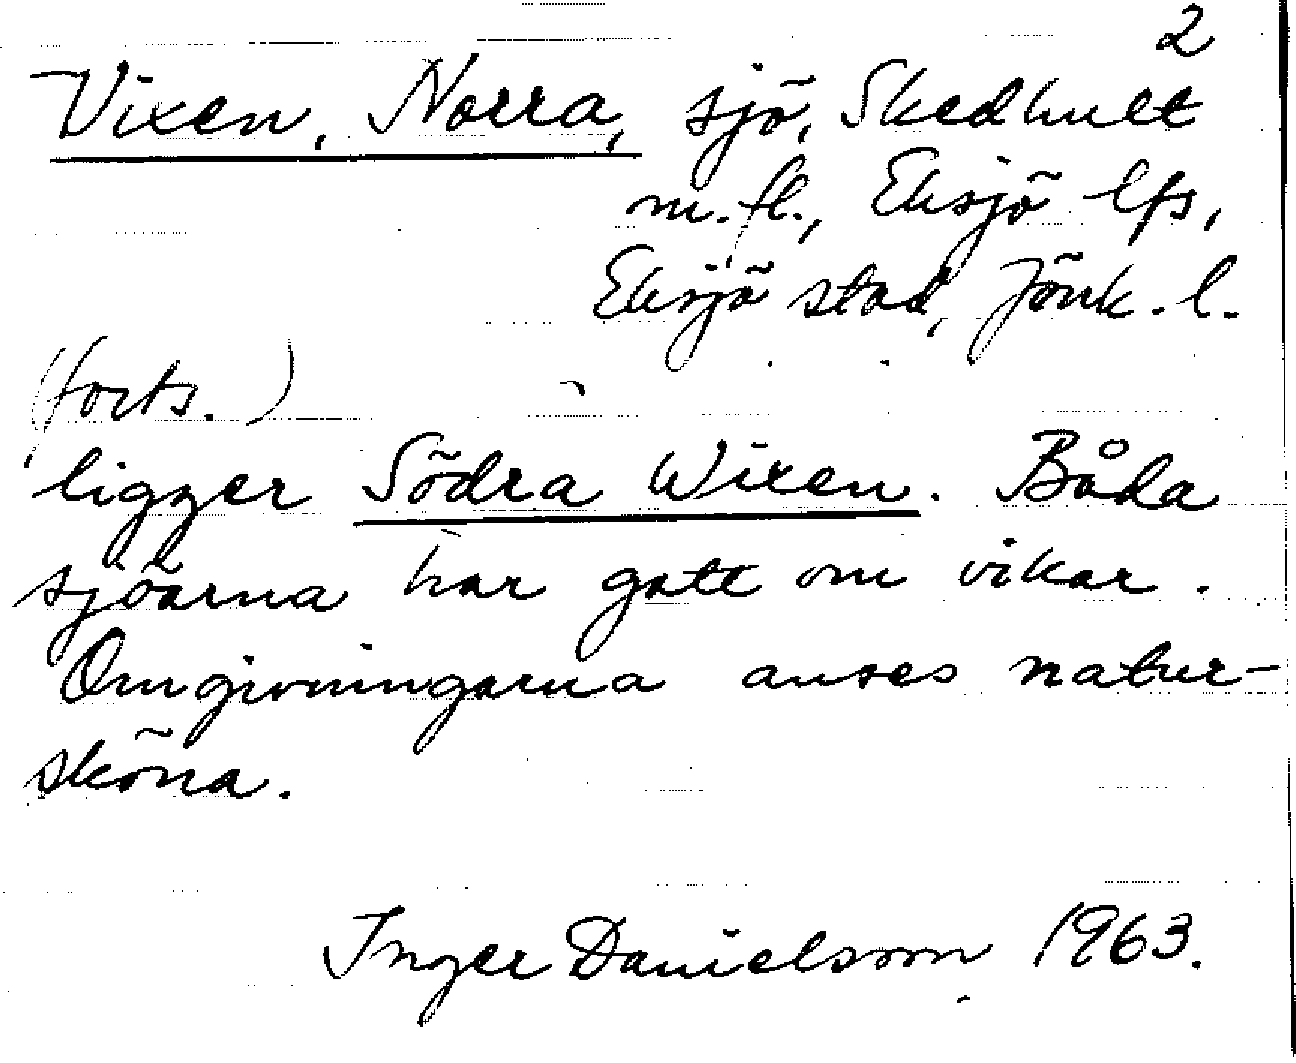 2
Vixen, Norra, sjö, Skedhult
m.fl., Eksjö lfs,
Eksjö stad, Jönk. l.
(forts.)
ligger Södra Wixen. Båda
sjöarna har gott om vikar.
Omgivningarna anses natur-
sköna.
Inger Danielsson 1963.